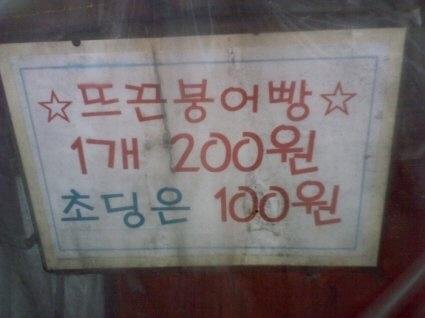 ☆뜨끈붕어빵☆
1개 200원
초딩은 100원